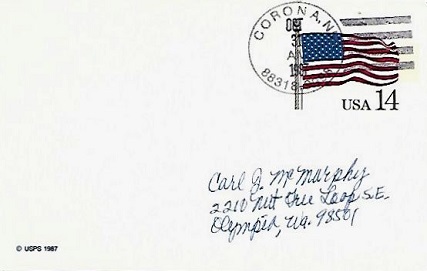 CORONA, N
OCT
31
AM
88318
USA 14
Carl J. McMurphy
2210 Nut Tree Loop S.E.
Olympia, Wa. 98501
© USPS 1987